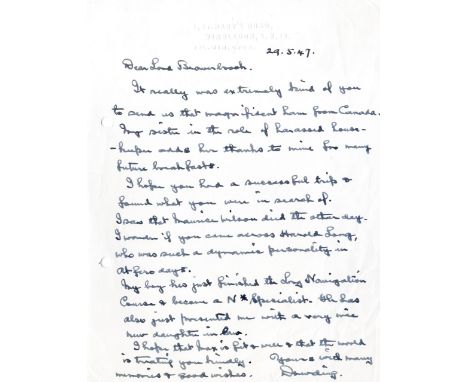 29.5.47.
Dear Lord Beaverbrook.
It really was extremely kind of you
to send us that magnificent ham from Canada.
My sister in the role of harassed house-
-keeper adds her thanks to mine for many
future breakfasts.
I hope you had a successful trip &
found what you were in search of.
I saw that Maurice Wilson died the other day.
I wonder if you came across Harold Long,
who was such a dynamic personality in
Atfero days.
My boy has just finished the Long Navigation
Course & became a N* Specialist. He has
also just presented me with a very nice
new daughter in law.
I hope that Max is fit & well & that the world
is treating you kindly. Yours with many
memories & good wishes. Dowding.